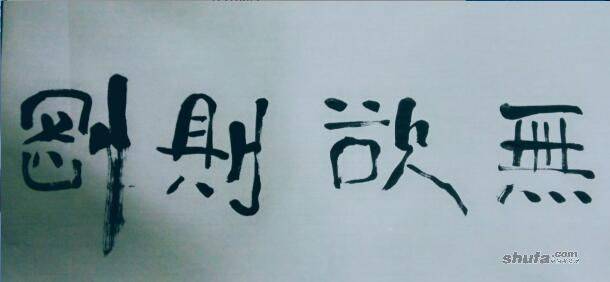 無欲則剛
shufa.com